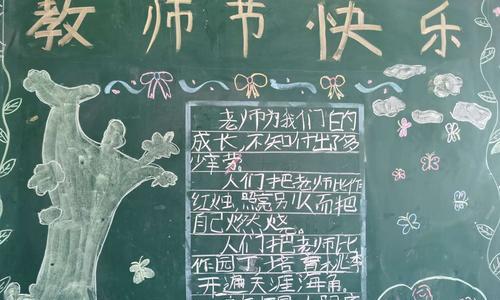 教师节快乐
老师为我们的
成长,不知付出了多
少辛劳。
人们把老师比作
红烛,照亮别人而把
自己燃烧。
人们把老师比
作园丁,培育桃李
开遍天涯海角。